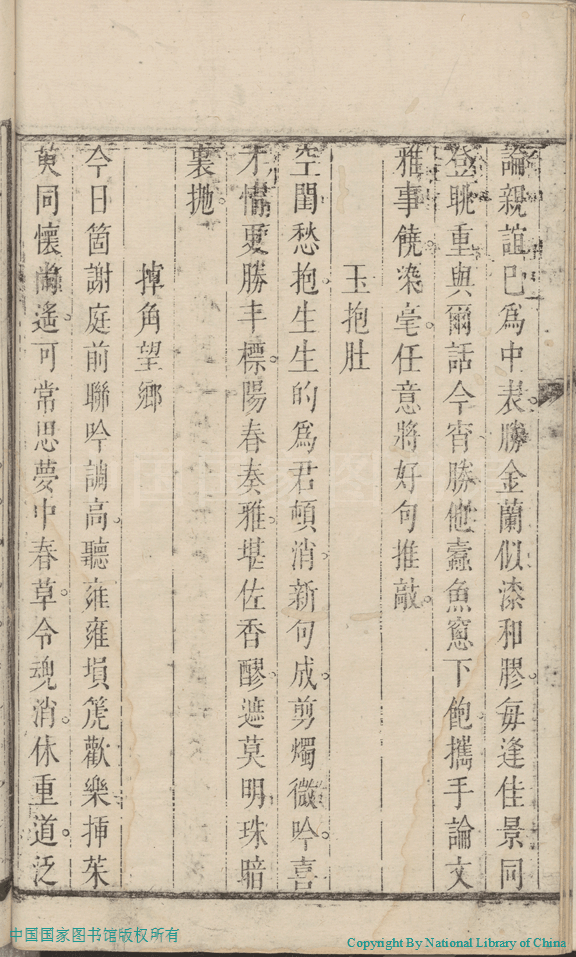 論親誼已爲中表勝金蘭似漆和膠每逢佳景同
登眺重與爾話今宵勝他蠹魚窻下飽攜手論文
雅事饒染毫任意將好句推敲
玉抱肚
空閨愁抱生生的爲君頓消新句成剪燭微吟喜
才情更勝丰標陽春奏雅堪佐香醪遮莫明珠暗
裏拋
掉角望鄉
今日箇謝庭前聯吟調高聽雍雍塤箎歡樂挿茱
萸同懷尚遙可常思夢中春草令魂消休重道泛
中国国家图书馆版权所有
Copyright By National Library of China